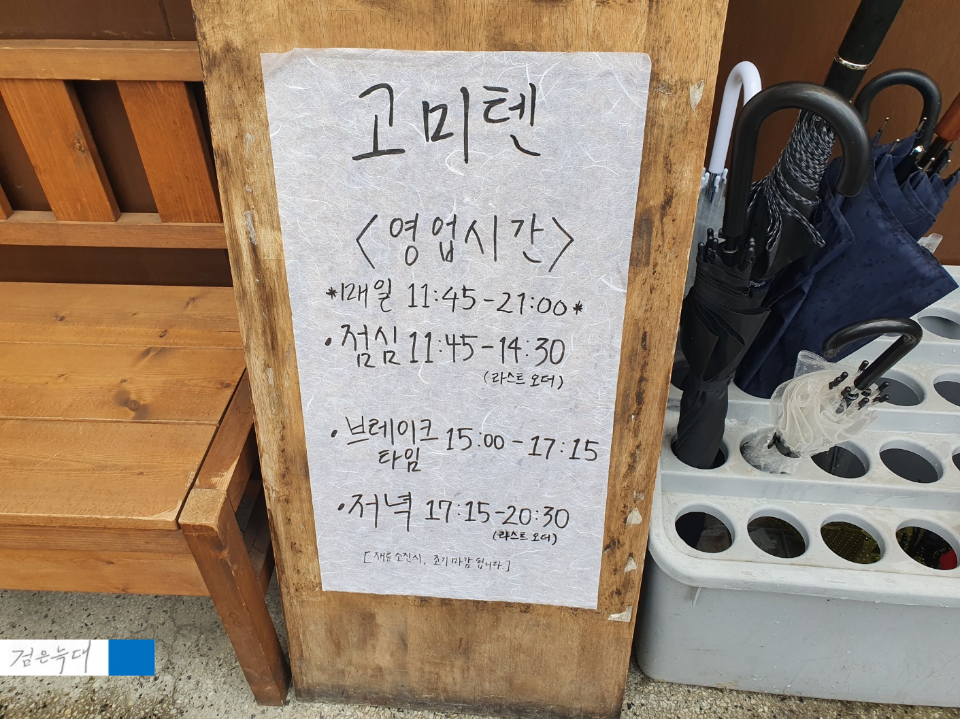 고미텐
<영업시간>
*매일 11:45-21:00*
•점심 11:45-14:30
(라스트 오더)
•브레이크 15:00-17:15
타임
•저녁 17:15-20:30
(라스트 오더)
[재료 소진시, 조기 마감 됩니다.]
검은늑대